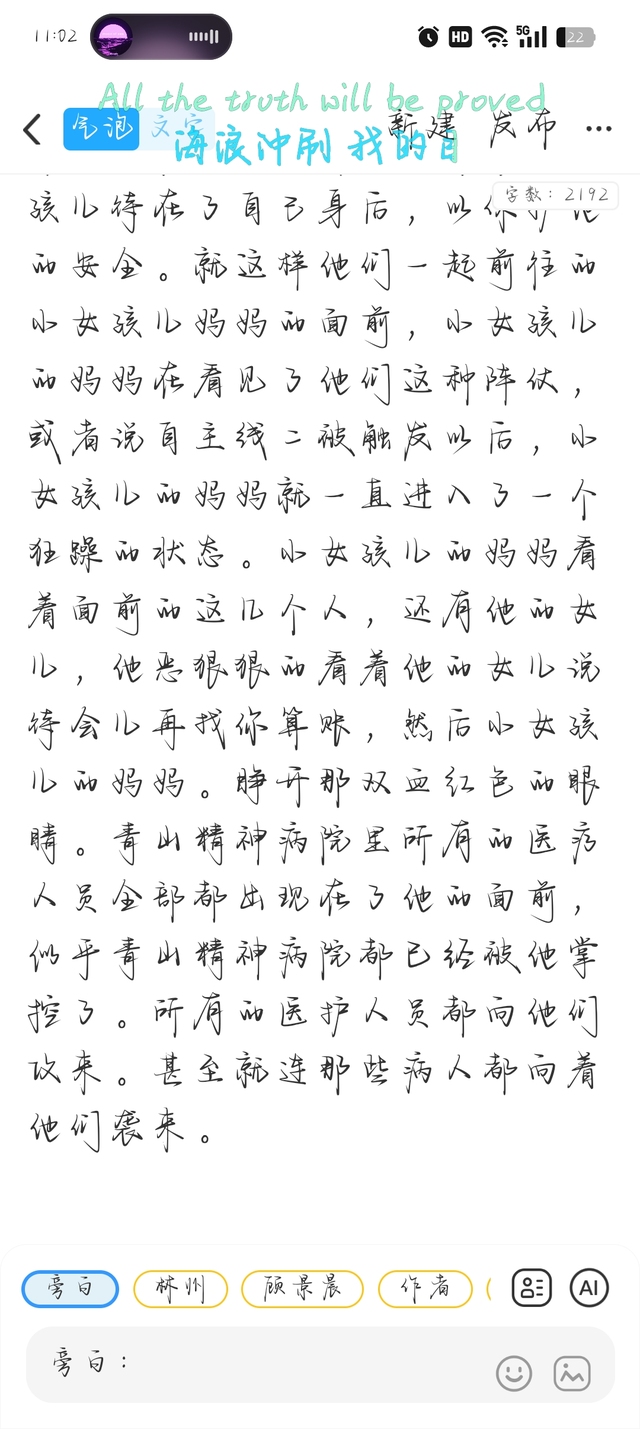 11:02
HD 5G 22
All the truth will be proved
气泡 文字 新建 发布
海浪冲刷 我的
字数：2192
孩儿待在了自己身后，以
的安全。就这样他们一起前往的
小女孩儿妈妈的面前，小女孩儿
的妈妈在看见了他们这种阵仗，
或者说自主线二被触发以后，小
女孩儿的妈妈就一直进入了一个
狂躁的状态。小女孩儿的妈妈看
着面前的这几个人，还有他的女
儿，他恶狠狠的看着他的女儿说
待会儿再找你算账，然后小女孩
儿的妈妈。睁开那双血红色的眼
睛。青山精神病院里所有的医疗
人员全部都出现在了他的面前，
似乎青山精神病院都已经被他掌
控了。所有的医护人员都向他们
攻来。甚至就连那些病人都向着
他们袭来。
旁白 林州 顾景晨 作者 AI
旁白：